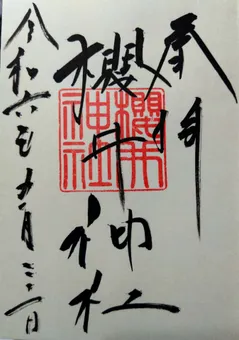 奉拝
櫻井神社
櫻井
神社
令和六年 月 日